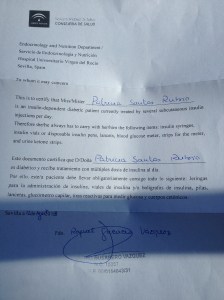 CONSEJERÍA DE SALUD
Endocrinology and Nutrition Department /
Servicio de Endocrinología y Nutrición
Hospital Universitario Virgen del Rocío
Sevilla, Spain
To whom it may concern
This is to certify that Miss/Missr Patricia
is an insulin-dependent diabetic patient currently treated by several subcutaneous insulin
injections per day.
Therefore she/he always has to carry with her/him the following items: insulin syringes,
insulin vials or disposable insulin pens, lancets, blood glucose meter, strips for the meter,
and urine ketone strips.
Este documento certifica que D/Doña Patricia
es diabético y recibe tratamiento con múltiples dosis de insulina al día.
Por ello, el/ella paciente debe llevar obligatoriamente consigo todo lo siguiente, jeringas
para la administración de insulina, viales de insulina y/o bolígrafos de insulina, pilas,
lancetas, glucómetro capilar, tiras reactivas para medir glucosa y cuerpos cetónicos.